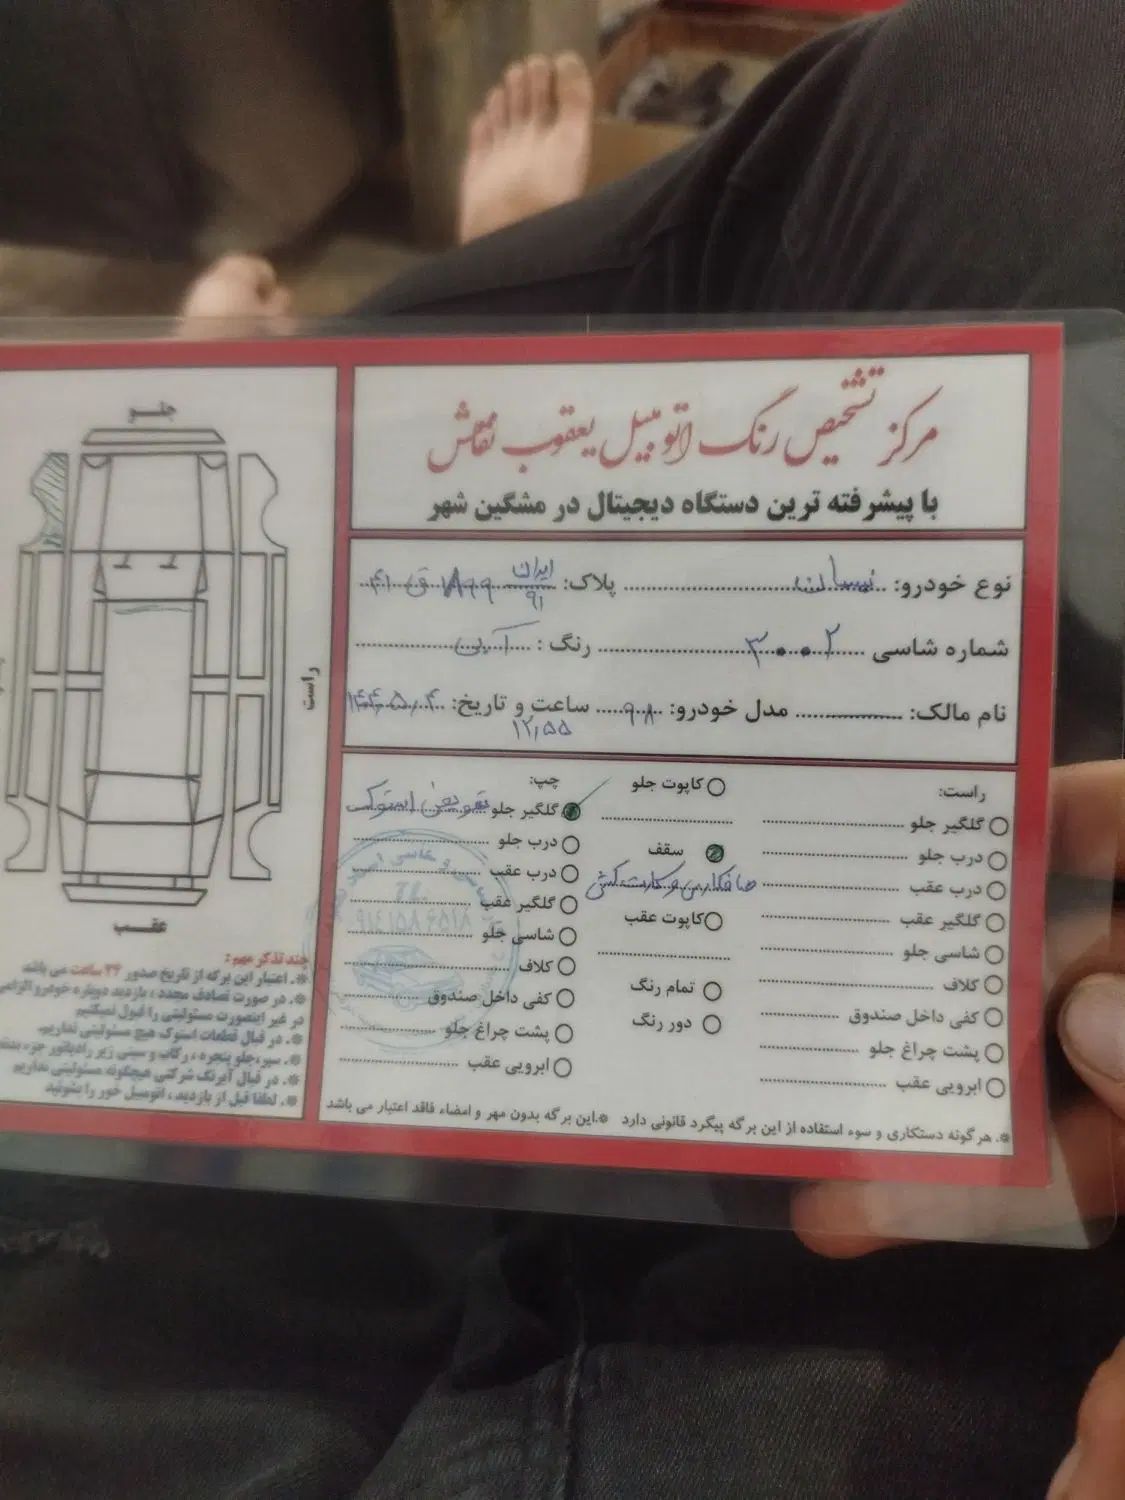 مرکز تشخیص رنگ اتومبیل یعقوب نقاش
با پیشرفته ترین دستگاه دیجیتال در مشگین شهر
نوع خودرو: نیسان پلاک: ایران ۹۱
شماره شاسی ۳۰۰۲ رنگ: آبی
نام مالک: مدل خودرو: ۹۸ ساعت و تاریخ:
۱۲,۵۵
راست:
گلگیر جلو
درب جلو
درب عقب
گلگیر عقب
شاسی جلو
کلاف
کفی داخل صندوق
پشت چراغ جلو
ابرویی عقب
کاپوت جلو
سقف
صافکاری
کاپوت عقب
تمام رنگ
دور رنگ
چپ:
گلگیر جلو تعویض استوک
درب جلو
درب عقب
گلگیر عقب
شاسی جلو
کلاف
کفی داخل صندوق
پشت چراغ جلو
ابرویی عقب
※. هرگونه دستکاری و سوء استفاده از این برگه پیگرد قانونی دارد ※.این برگه بدون مهر و امضاء فاقد اعتبار می باشد
جلـو
راست
عقـب
چند تذکر مهم:
※. اعتبار این برگه از تاریخ صدور ۲۴ ساعت می باشد
※. در صورت تصادف مجدد ، بازدید دوباره خودرو الزامی
در غیر اینصورت مسئولیتی را قبول نمیکنیم
※. در قبال قطعات استوک هیچ مسئولیتی نداریم.
※. سپر،جلو پنجره ، رکاب و سینی زیر رادیاتور جزء بدنه
※. در قبال آبرنگ شرکتی هیچگونه مسئولیتی نداریم
※. لطفا قبل از بازدید ، اتومبیل خود را بشوئید